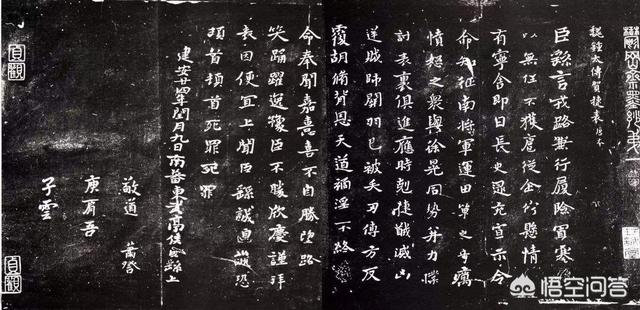 鬱岡齋墨妙第
魏鍾太傅賀捷表唐本
臣繇言戎路兼行履險冒寒
以無任不獲扈從企佇懸情
有寧舍即日長史逯充宣示令
命知征南將軍運田單之奇厲
憤怒之衆與徐晃同勢并力撲
討表裏俱進應時剋捷馘滅凶
逆賊帥關羽已被矢刃傅方反
覆胡脩背恩天道禍淫不終
貞觀
貞觀
命奉聞嘉憙喜不自勝望路
笑踊躍逸豫臣不勝欣慶謹拜
表因便宜上聞臣繇誠惶誠恐
頓首頓首死罪死罪
建安廿四年閏月九日南蕃東武亭侯臣繇上
敬道
庾肩吾
子雲
悟空问答